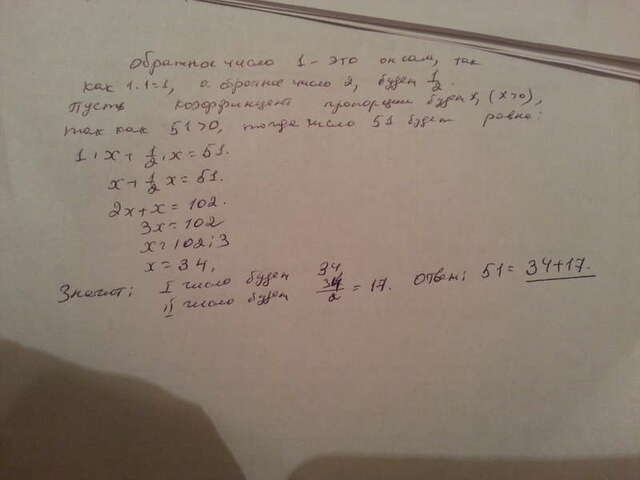 Обратное число 1 - это он сам, так
как 1·1=1, а обратное число 2, будет 1/2.
Пусть коэффициент пропорции будет x, (x>0),
так как 51>0, тогда число 51 будет равно:
1·x+1/2·x=51.
x+1/2x=51.
2x+x=102.
3x=102
x=102:3
x=34,
Значит; I число будет 34,
II число будет 34/2=17. Ответ; 51=34+17.